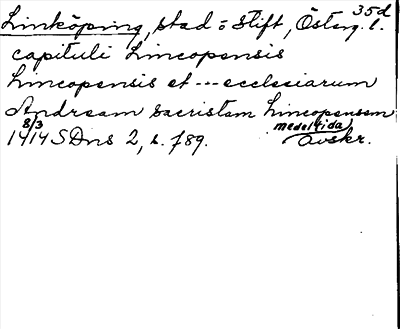 35d
Linköping, stad o Stift, Österg. l.
capituli Lincopensis
Lincopensis et --- ecclesiarum
Andream sacristam Lincopensem
8/3 medeltida
1414 SDns 2, s. 789. avskr.